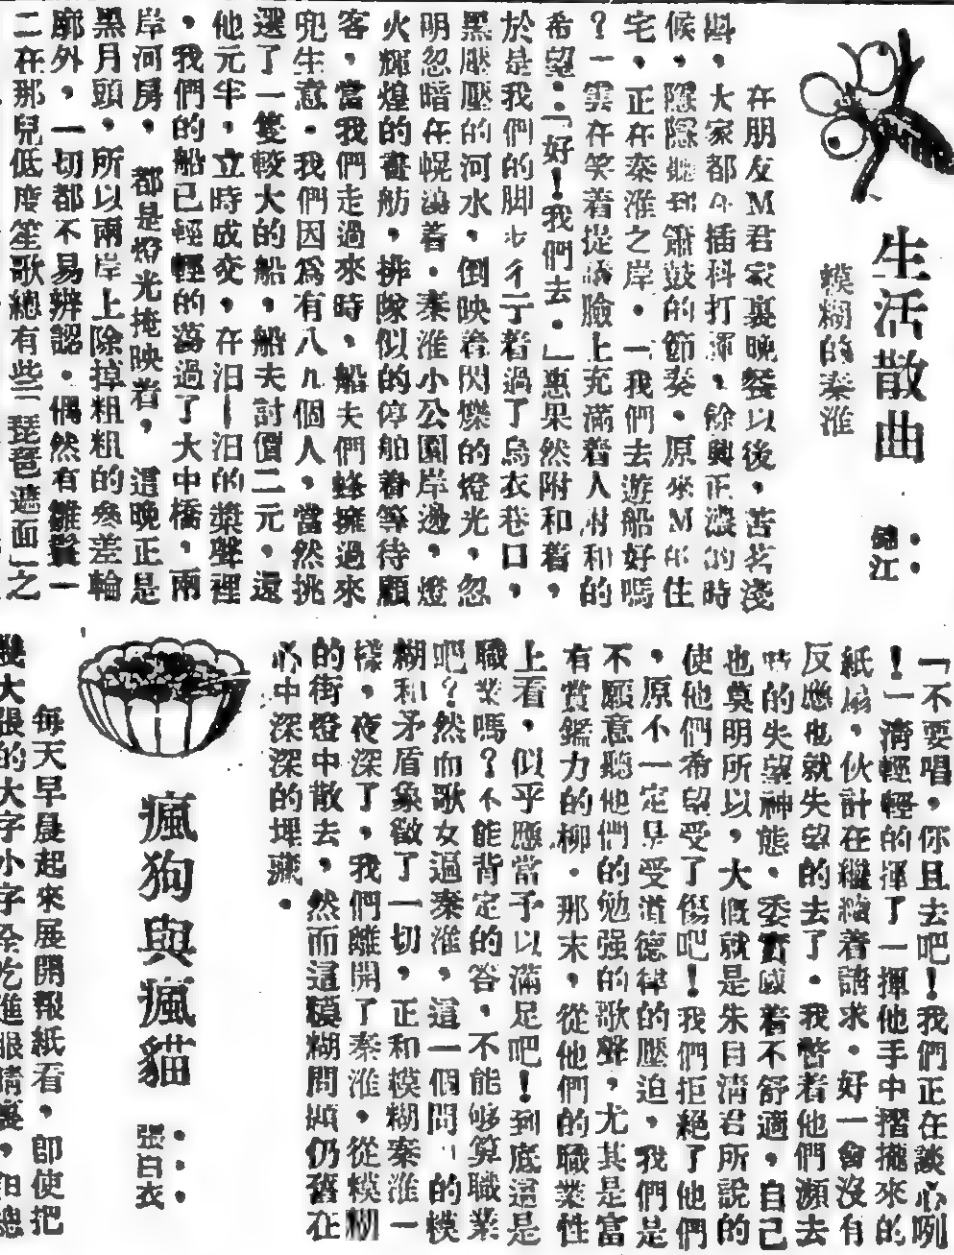 生活散曲
錦江
模糊的秦淮
在朋友M君家裏晚餐以後，苦茗淺
斟，大家都在插科打諢，餘興正濃的時
候，隱隱聽到簫鼓的節奏。原來M的住
宅，正在秦淮之岸。「我們去遊船好嗎
？」雲在笑着提議臉上充滿着人附和的
希望：「好！我們去。」惠果然附和着，
於是我們的脚步彳亍着過了烏衣巷口，
黑壓壓的河水，倒映着閃爍的燈光，忽
明忽暗在幌漾着。秦淮小公園岸邊，燈
火輝煌的畫舫，排隊似的停舶着等待顧
客，當我們走過來時，船夫們蜂擁過來
兜生意。我們因爲有八九個人，當然挑
選了一隻較大的船，船夫討價二元，還
他元半，立時成交，在汨—汨的槳聲裡
，我們的船已輕輕的蕩過了大中橋，兩
岸河房，都是燈光掩映着，這晚正是
黑月頭，所以兩岸上除掉粗粗的參差輪
廓外，一切都不易辨認。偶然有雛鬟一
二在那兒低度笙歌總有些「琵琶遮面」之
「不要唱，你且去吧！我們正在談心咧
！」清輕輕的揮了一揮他手中摺攏來的
紙扇，伙計在繼續着請求。好一會沒有
反應也就失望的去了。我瞥着他們瀕去
時的失望神態，委實感着不舒適，自己
也莫明所以，大概就是朱自清君所說的
使他們希望受了傷吧！我們拒絕了他們
，原不一定是受道德律的壓迫，我們是
不願意聽他們的勉强的歌聲，尤其是富
有賞鑑力的柳。那末，從他們的職業性
上看，似乎應當予以滿足吧！到底這是
職業嗎？不能背定的答，不能够算職業
吧？然而歌女逼秦淮，這一個問　的模
糊和矛盾象徵了一切，正和模糊秦淮一
樣，夜深了，我們離開了秦淮，從模糊
的街燈中散去，然而這模糊問題仍舊在
心中深深的埋藏。
瘋狗與瘋貓
張白衣
每天早晨起來展開報紙看，即使把
幾大張的大字小字全吃進眼睛裏，但總